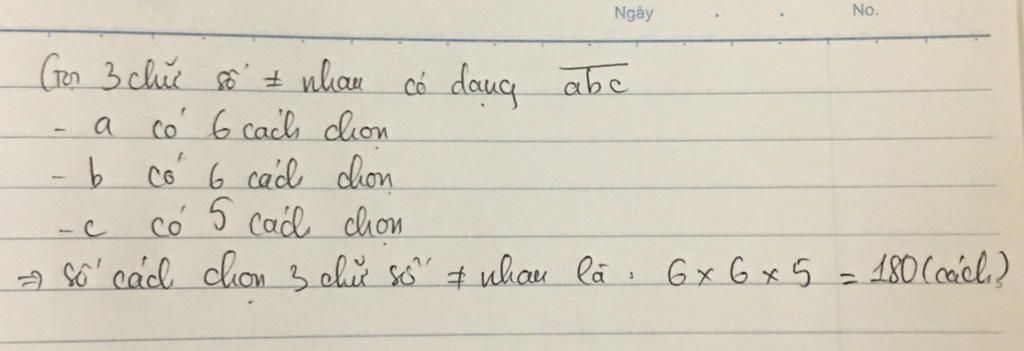 Ngày . . No.
Gọi 3 chữ số ≠ nhau có dạng a̅b̅c̅
- a có 6 cách chọn
- b có 6 cách chọn
- c có 5 cách chọn
⇒ số cách chọn 3 chữ số ≠ nhau là : 6 × 6 × 5 = 180 (cách)